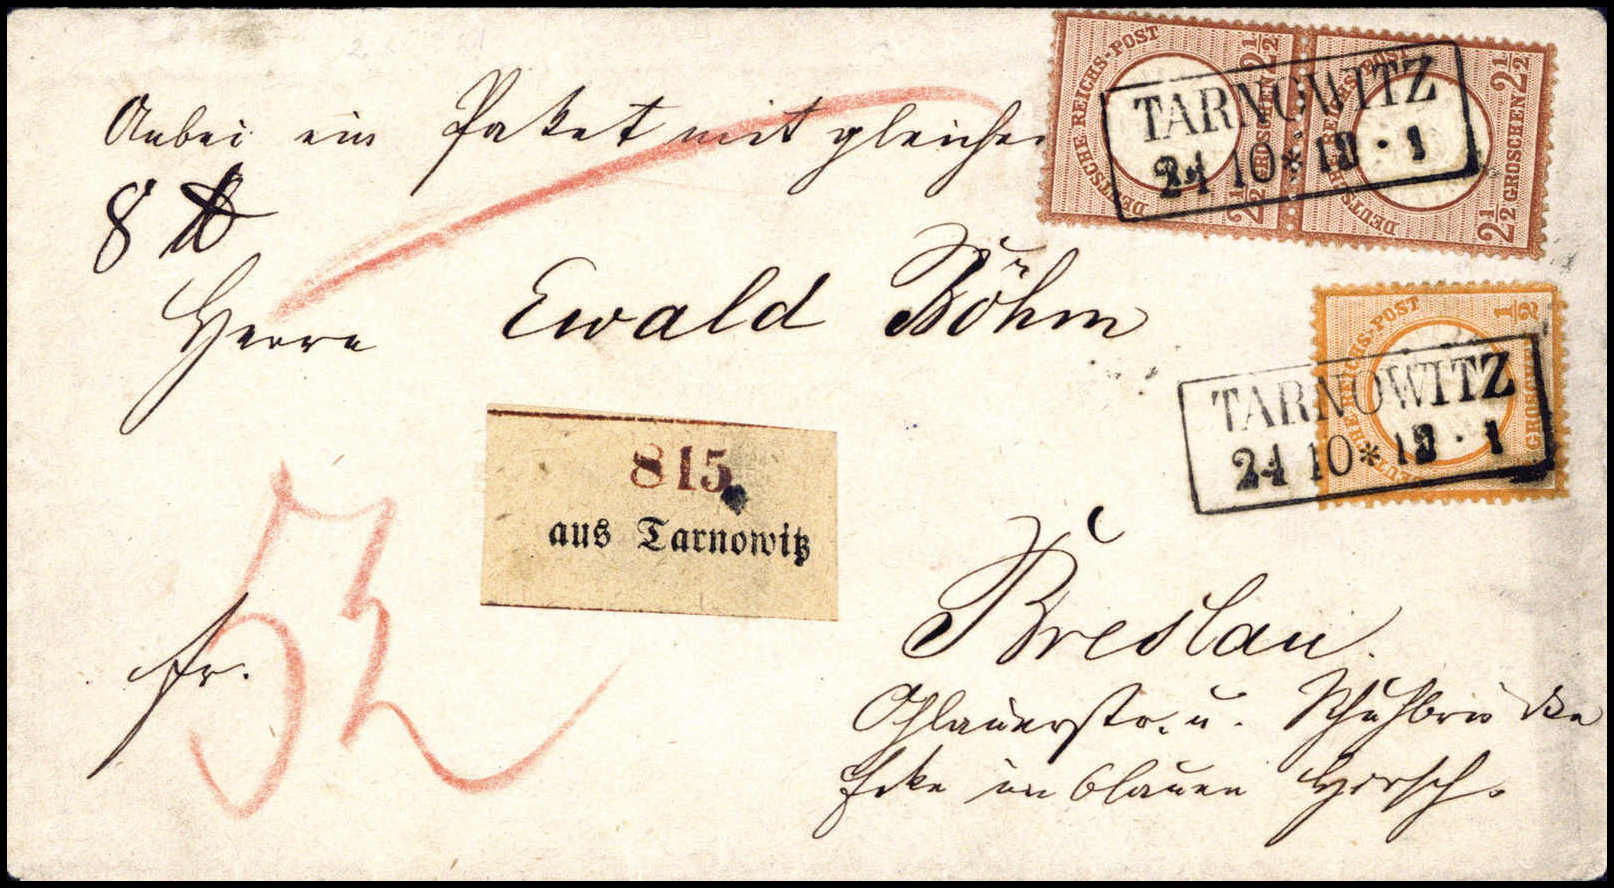 Anbei ein Paket mit gleicher
8 ℔
Herrn Ewald Böhm
DEUTSCHE REICHS-POST
2½ GROSCHEN 2½
DEUTSCHE REICHS-POST
2½ GROSCHEN 2½
TARNOWITZ
24 10 * 12 · 1
DEUTSCHE REICHS-POST
½ GROSCHEN
TARNOWITZ
24 10 * 12 · 1
815
aus Tarnowitz
fr.
Breslau.
Ohlauerstr. u. Schuhbrücke
Ecke im blauen Hirsch.